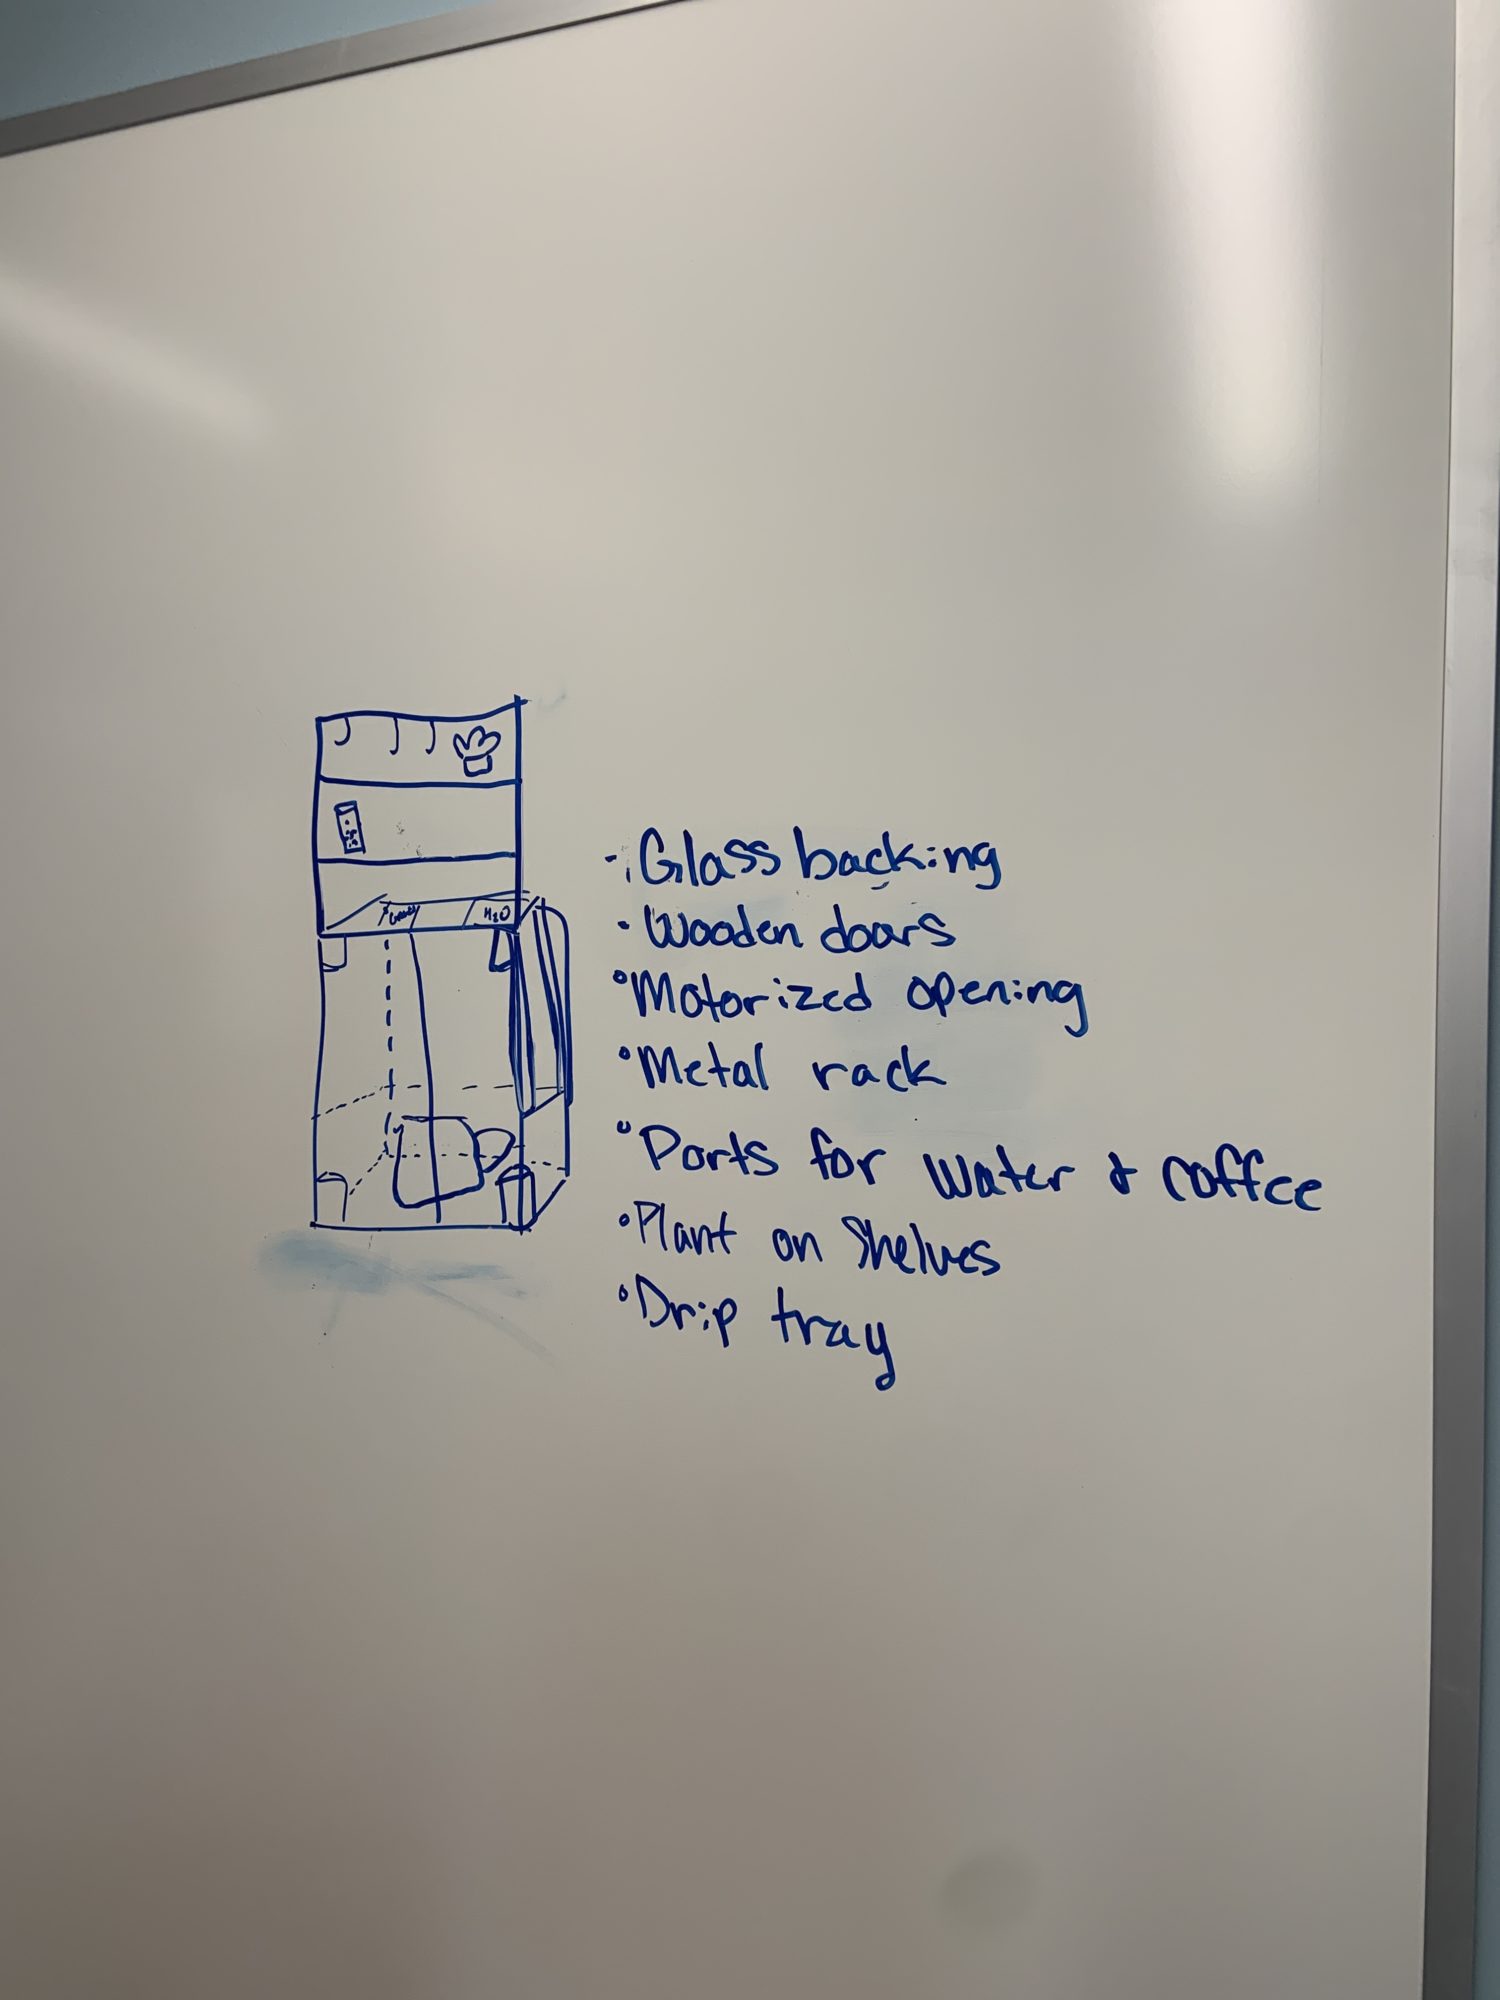 H2O
- Glass backing
• Wooden doors
• Motorized opening
• Metal rack
• Ports for water & coffee
• Plant on shelves
• Drip tray